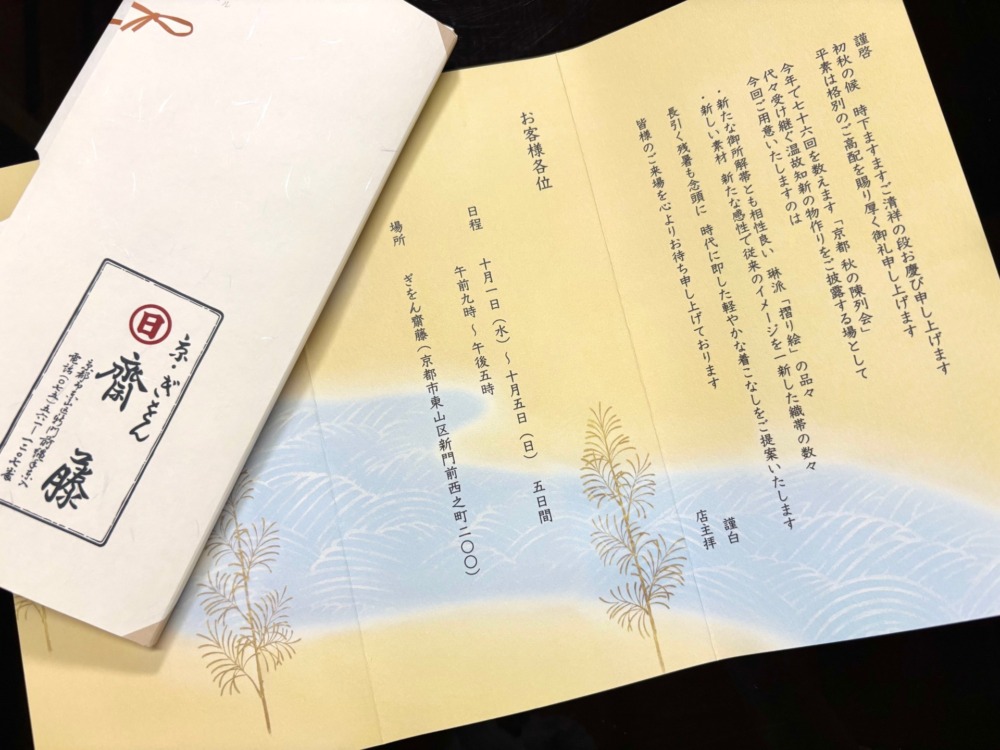 謹啓
初秋の候　時下ますますご清祥の段お慶び申し上げます
平素は格別のご高配を賜り厚く御礼申し上げます
今年で七十六回を数えます「京都 秋の陳列会」
代々受け継ぐ温故知新の物作りをご披露する場として
今回ご用意いたしますのは
・新たな御所解帯とも相性良い　琳派「摺り絵」の品々
・新しい素材　新たな感性で従来のイメージを一新した織帯の数々
長引く残暑も念頭に　時代に即した軽やかな着こなしをご提案いたします
皆様のご来場を心よりお待ち申し上げております
謹白
店主拝
お客様各位
日程　十月一日（水）～十月五日（日）　五日間
午前九時～午後五時
場所　ぎをん齋藤（京都市東山区新門前西之町二〇〇）
日
京・ぎをん
齋藤
京都市東山区新門前縄手東入
電話（〇七五）五六一ー一二〇七番